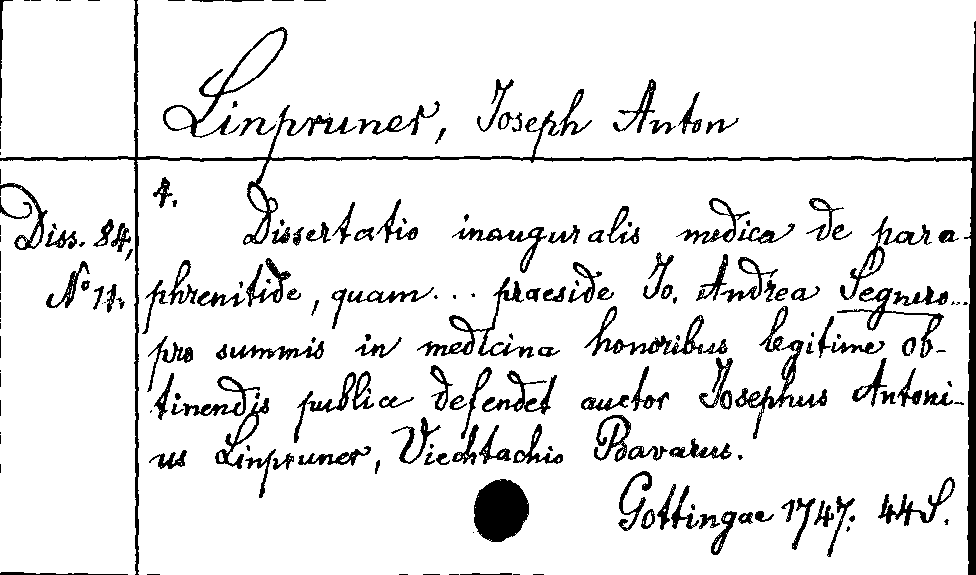 Linpruner, Joseph Anton
Diss. 84,
No 11.
4.
Dissertatio inauguralis medica de para-
phrenitide, quam... praeside Jo. Andrea Segnero...
pro summis in medicina honoribus legitime ob-
tinendis publice defendet auctor Josephus Antoni-
us Linpruner, Viechtachio Bavarus.
Gottingae 1747. 44 S.